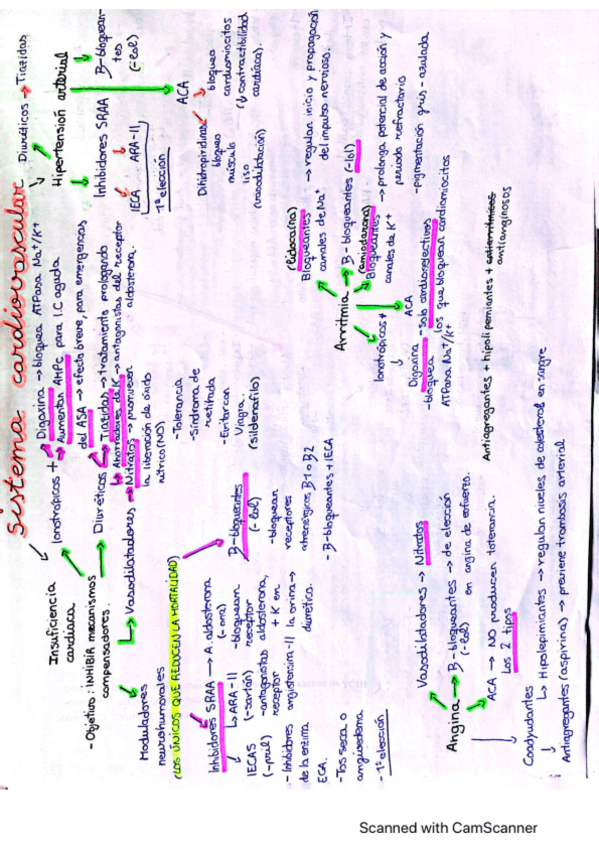 Sistema cardiovascular
Insuficiencia
cardiaca
- Objetivo: INHIBIR mecanismos
compensadores.
Ionotrópicos +
Digoxina → bloquea ATPasa Na+/K+
Aumentan AMPc para I.C aguda
Diuréticos
del ASA → efecto breve, para emergencias
Tiazidas → tratamiento prolongado
Ahorradores de K → antagonistas del receptor
aldosterona.
Vasodilatadores → Nitratos → promueven
la liberación de óxido
nítrico (NO)
- Tolerancia
- Síndrome de
retirada
- Evitar con
Viagra.
(sildenafilo)
Moduladores
neurohumorales
(LOS ÚNICOS QUE REDUCEN LA MORTALIDAD)
Inhibidores SRAA → A. aldosterona
(-ona)
- bloquean
receptor
aldosterona,
+ K en
la orina →
diurético
ARA-II
(-sartán)
- antagonistas
receptor
angiotensina-II
IECAS
(-pril)
- Inhibidores
de la enzima
ECA.
- Tos seca o
angioedema
- 1ª elección
B-bloqueantes
(-lol)
- bloquean
receptores
adrenérgicos B1 o B2
- B-bloqueantes + IECA
Hipertensión arterial
Diuréticos → Tiazidas
B-bloquean-
tes
(-lol)
Inhibidores SRAA
IECA
ARA-II
1ª elección
ACA
Dihidropiridinas
bloquea
músculo
liso
(vasodilatación)
bloquea
cardiomiocitos
(↓ contractibilidad
cardíaca).
Arritmia
(lidocaína)
Bloqueantes → regulan inicio y propagación
canales de Na+ del impulso nervioso.
B-bloqueantes (-lol)
(amiodarona)
Bloqueantes → prolonga potencial de acción y
canales de K+ periodo refractario
- pigmentación gris-azulada
ACA
- solo cardioselectivos
los que bloquean cardiomiocitos
Ionotrópicos +
Digoxina
- bloquea
ATPasa Na+/K+
Angina
Vasodilatadores → Nitratos
B-bloqueantes → de elección
(-lol) en angina de esfuerzo.
ACA → NO producen tolerancia.
Los 2 tipos
Coadyudantes
Antiagregantes + hipolipemiantes + antiarritmicos
antianginosos
Hipolepimiantes → regulan niveles de colesterol en sangre
Antiagregantes (aspirina) → previene trombosis arterial
Scanned with CamScanner